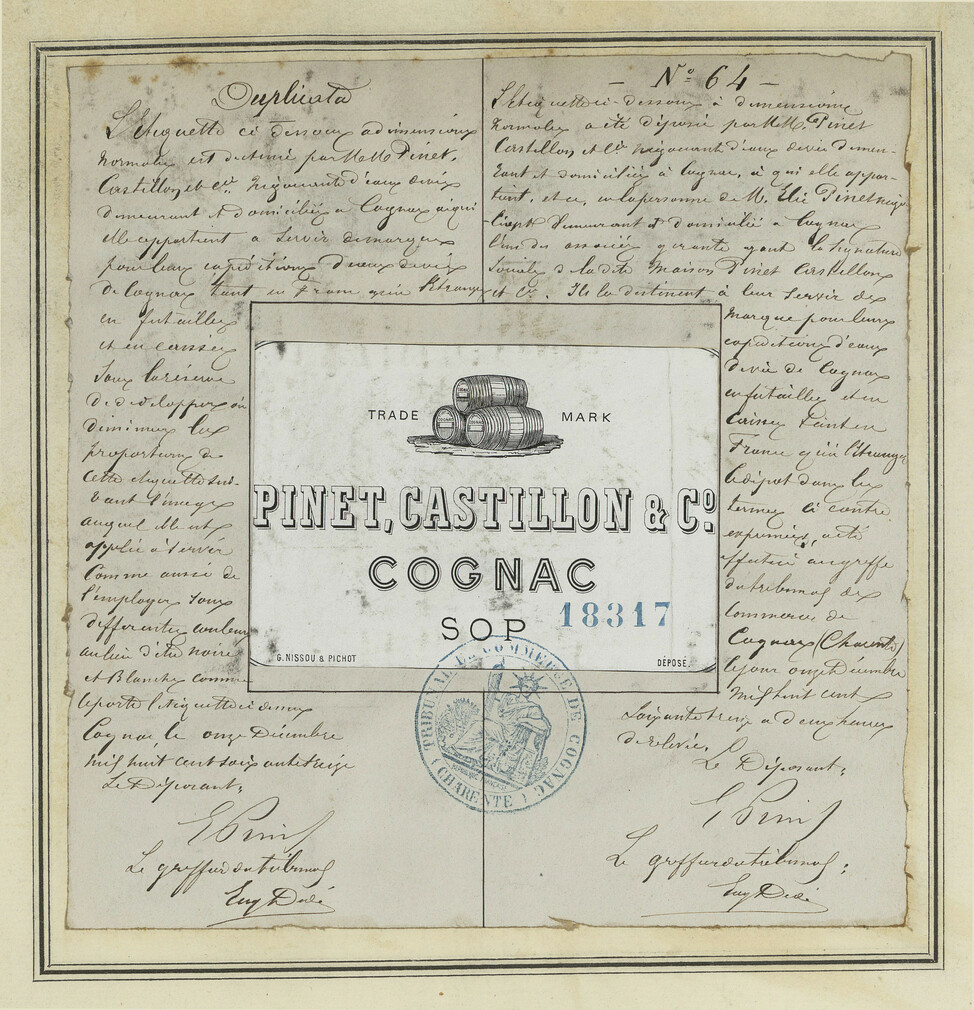 Duplicata
L'Etiquette ci dessous a dimensions
normales est destinée par M.M. Pinet,
Castillon et Cie. Négociants d'eaux devie
demeurant et domiciliés a Cognac aqui
elle appartient a servir demarques
pour leurs expéditions d'eaux devie
de Cognac tant en France qu'a l'Etranger
en futailles
et en caisses
Sous la réserve
de développer ou
diminuer les
proportions de
cette etiquette sui-
vant l'usage
auquel elle est
appelée à servir
Comme aussi de
l'employer sous
differentes couleurs
au lieu d'être noire
et Blanche comme
le porte l'etiquette ci dessus
Cognac, le onze Décembre
mil huit cent soixante treize
Le Déposant;
E Pinet
Le greffier du tribunal
Eug Dédé
- No 64 -
L'Etiquette ci-dessous à dimensions
normales a été déposée par M.M. Pinet
Castillon et Cie négociants d'eaux devie demeu-
rant et domiciliés à Cognac, à qui elle appar-
tient, et ce, en la personne de M. Elie Pinet négo-
ciant demeurant et domicilié a Cognac
l'un des associés gerants ayant la signature
sociale de la dite maison Pinet Castillon
et Cie. Ils la destinent à leur servir de
marque pour leurs
expéditions d'eaux
devie de Cognac
en futailles et en
caisses tant en
France qu'à l'étranger
Le dépot dans les
termes ci contre
exprimés, a été
effectué au greffe
du tribunal de
Commerce de
Cognac (Charente)
le jour onze Décembre
mil huit cent
soixante treize a deux heures
de relevée.
Le Déposant;
E Pinet
Le greffier du tribunal;
Eug Dédé
TRADE MARK
COGNAC
COGNAC
COGNAC
PINET, CASTILLON & Co.
COGNAC
SOP
18317
G. NISSOU & PICHOT
DÉPOSÉ.
TRIBUNAL DE COMMERCE DE COGNAC
(CHARENTE)